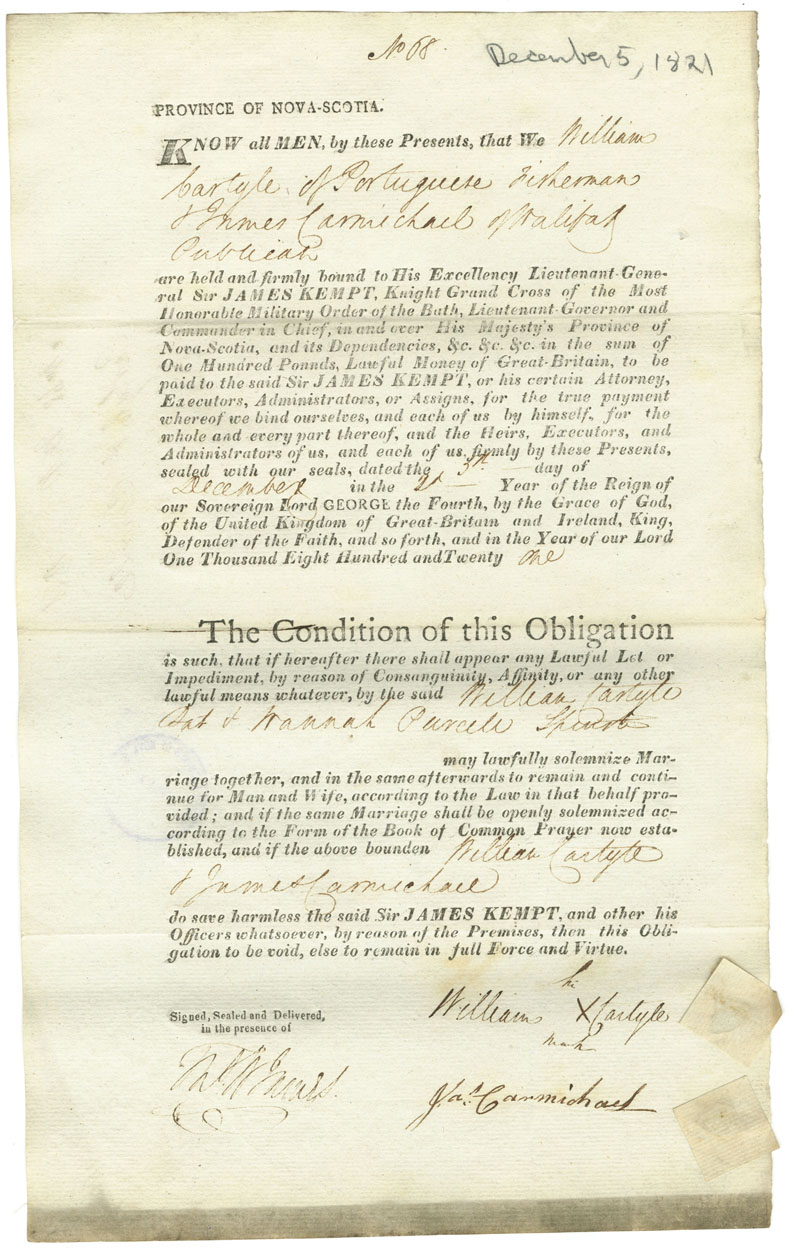 No 68.
December 5, 1821
PROVINCE OF NOVA-SCOTIA.
KNOW all MEN, by these Presents, that We William
Carlyle of Portuguese Fisherman
& James Carmichael of Halifax
Publican
are held and firmly bound to His Excellency Lieutenant-Gene-
ral Sir JAMES KEMPT, Knight Grand Cross of the Most
Honorable Military Order of the Bath, Lieutenant-Governor and
Commander in Chief, in and over His Majesty's Province of
Nova-Scotia, and its Dependencies, &c. &c. &c. in the sum of
One Hundred Pounds, Lawful Money of Great-Britain, to be
paid to the said Sir JAMES KEMPT, or his certain Attorney,
Executors, Administrators, or Assigns, for the true payment
whereof we bind ourselves, and each of us by himself, for the
whole and every part thereof, and the Heirs, Executors, and
Administrators of us, and each of us, firmly by these Presents,
sealed with our seals, dated the 5th day of
December in the 2d Year of the Reign of
our Sovereign Lord GEORGE the Fourth, by the Grace of God,
of the United Kingdom of Great-Britain and Ireland, King,
Defender of the Faith, and so forth, and in the Year of our Lord
One Thousand Eight Hundred and Twenty one
The Condition of this Obligation
is such, that if hereafter there shall appear any Lawful Let or
Impediment, by reason of Consanguinity, Affinity, or any other
lawful means whatever, by the said William Carlyle
& Hannah Purcell Spinster
may lawfully solemnize Mar-
riage together, and in the same afterwards to remain and conti-
nue for Man and Wife, according to the Law in that behalf pro-
vided; and if the same Marriage shall be openly solemnized ac-
cording to the Form of the Book of Common Prayer now esta-
blished, and if the above bounden William Carlyle
& James Carmichael
do save harmless the said Sir JAMES KEMPT, and other his
Officers whatsoever, by reason of the Premises, then this Obli-
gation to be void, else to remain in full Force and Virtue.
Signed, Sealed and Delivered,
in the presence of
his
William X Carlyle
mark
Jas. Carmichael